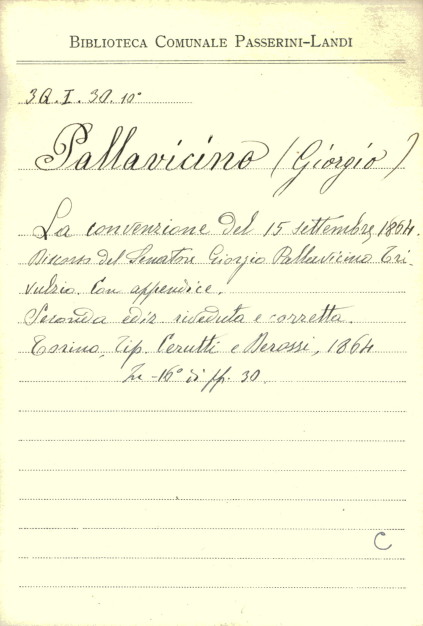 BIBLIOTECA COMUNALE PASSERINI-LANDI
3Q.I.30.10°
Pallavicino (Giorgio)
La convenzione del 15 settembre 1864.
Discorso del Senatore Giorgio Pallavicino Tri-
vulzio. Con appendice.
Seconda ediz. riveduta e corretta.
Torino, Tip. Cerutti e Derossi, 1864
In-16° di pp. 30.
C